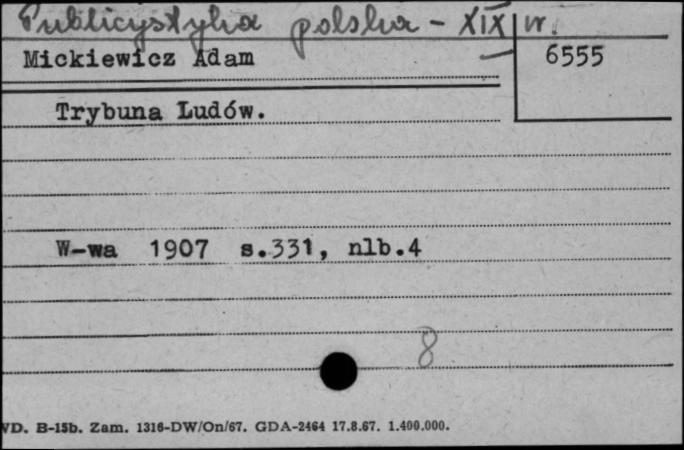 Publicystyka polska - XIX w.
Mickiewicz Adam
6555
Trybuna Ludów.
W-wa 1907 s.331, nlb.4
8
WD. B-15b. Zam. 1316-DW/On/67. GDA-2464 17.8.67. 1.400.000.